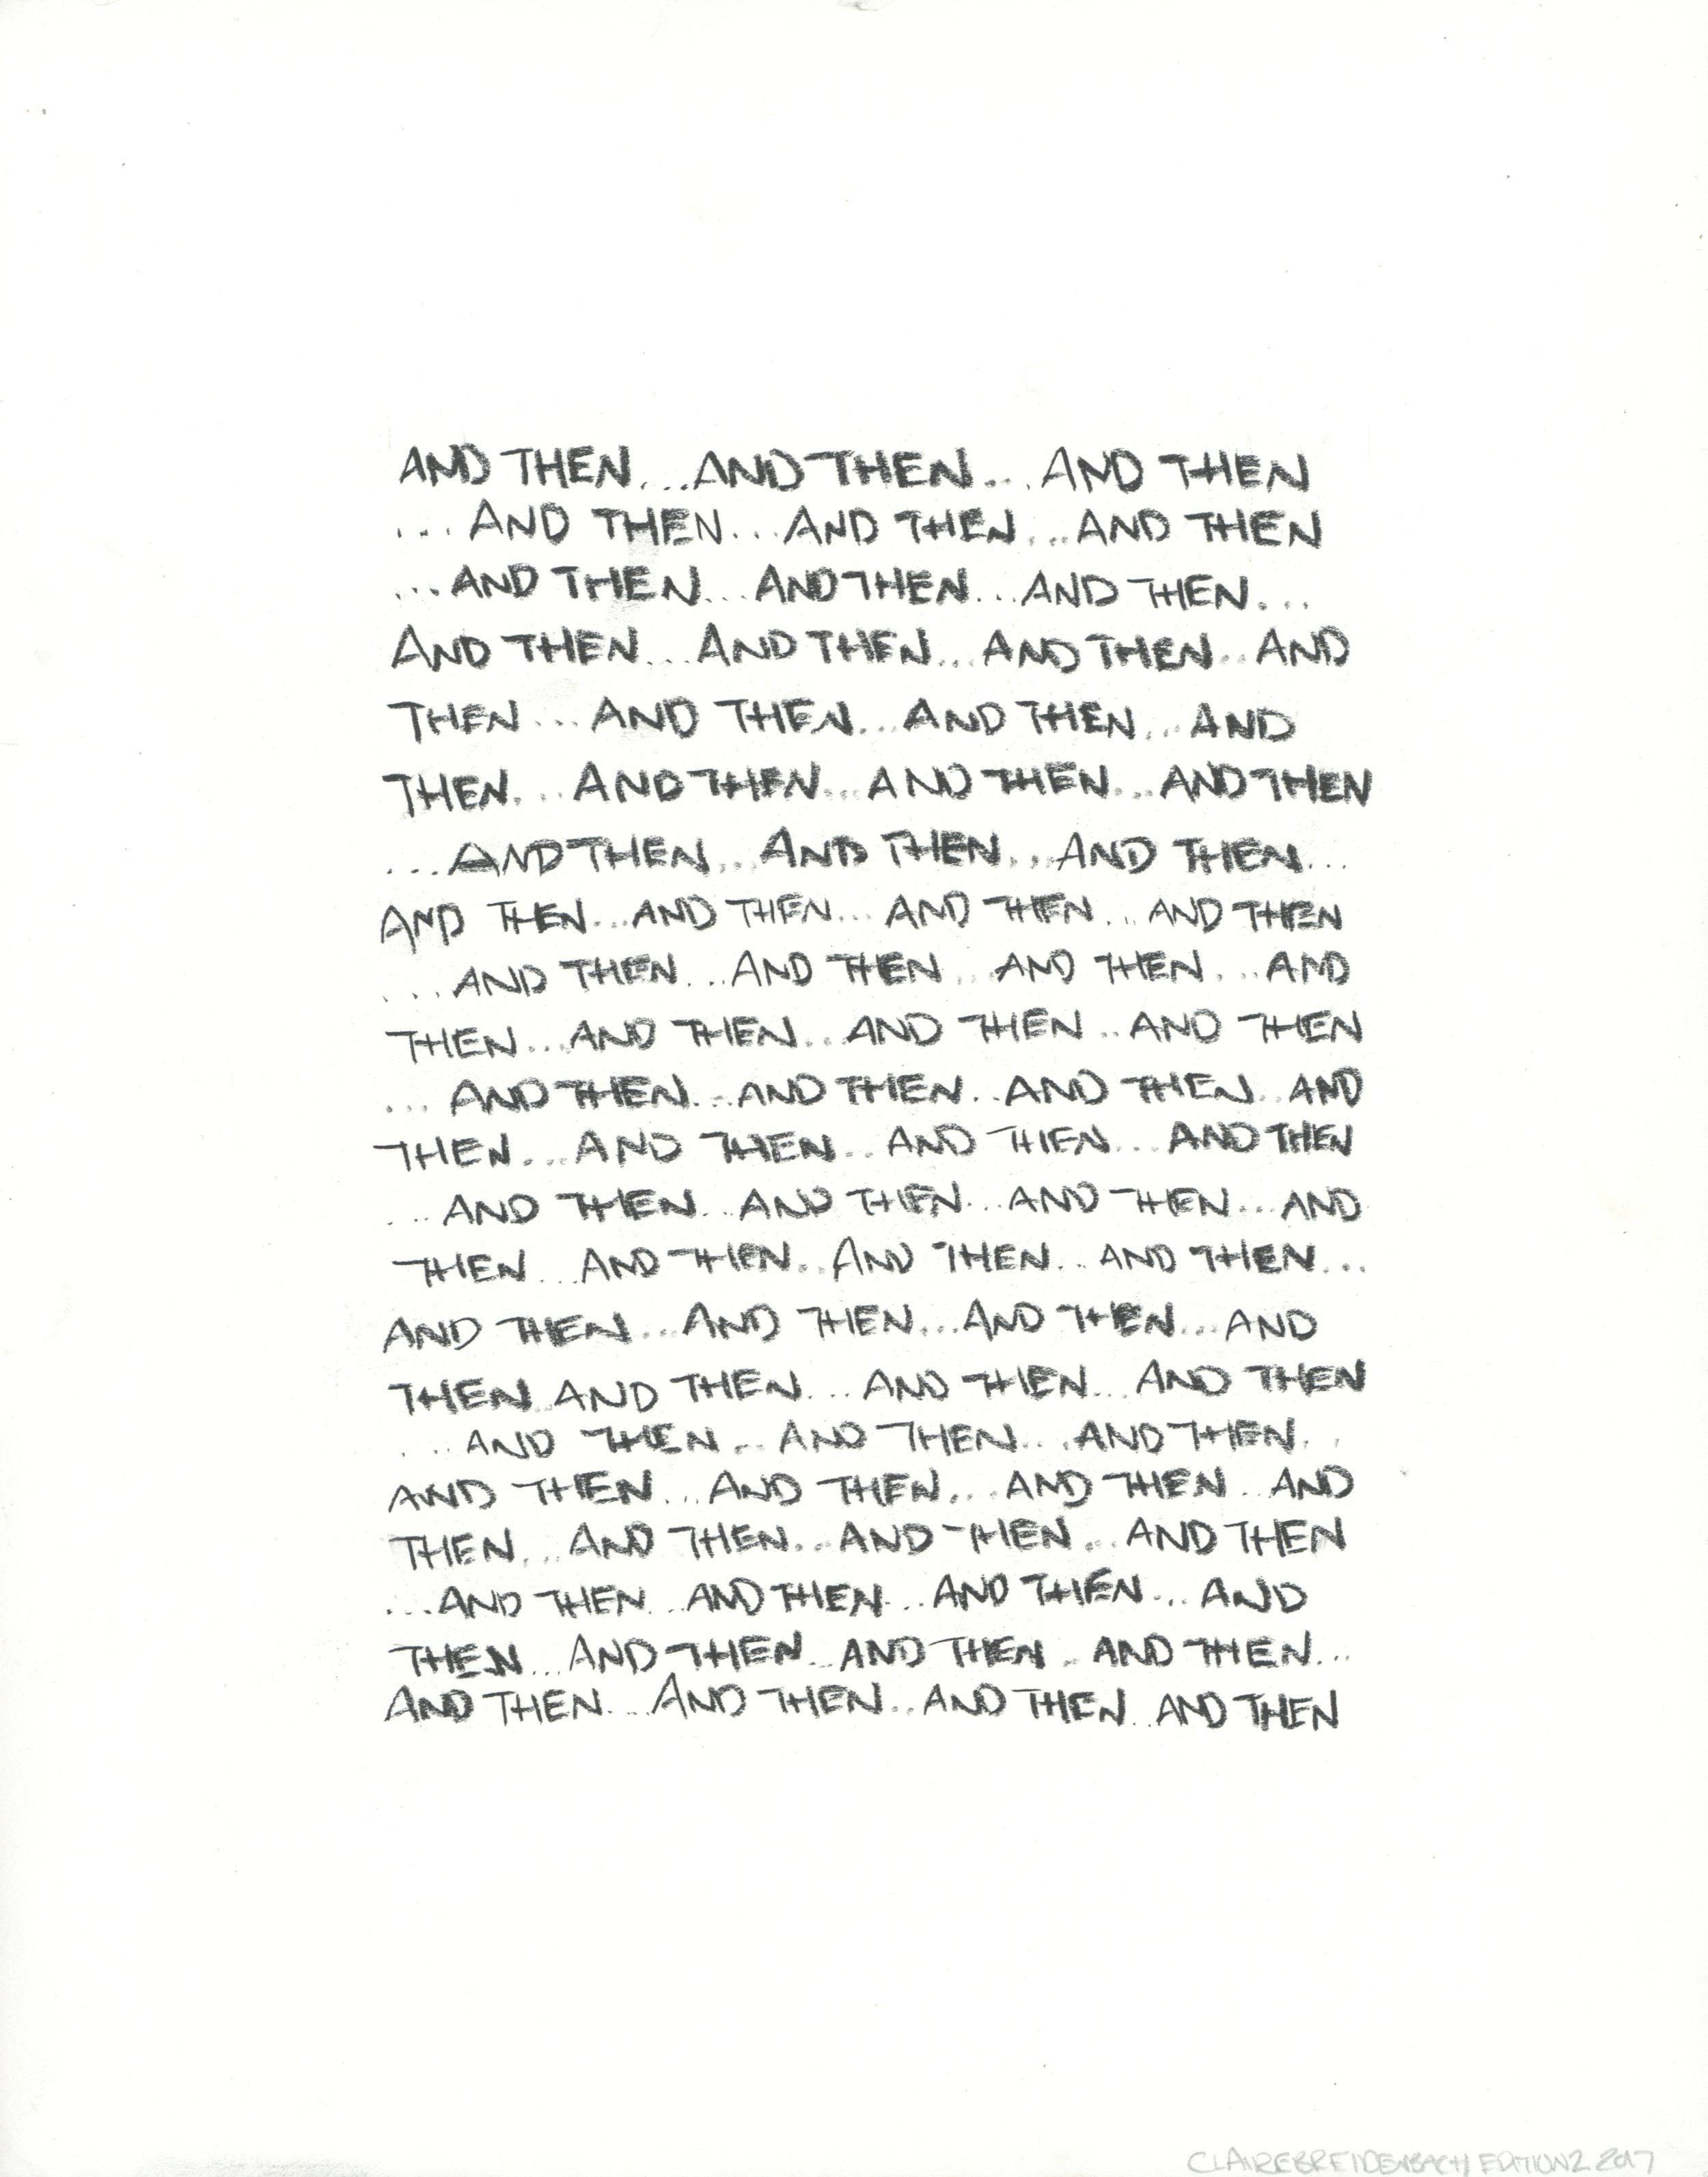 AND THEN...AND THEN...AND THEN
...AND THEN...AND THEN...AND THEN
...AND THEN...AND THEN...AND THEN...
AND THEN...AND THEN...AND THEN...AND
THEN...AND THEN...AND THEN...AND
THEN...AND THEN...AND THEN...AND THEN
...AND THEN...AND THEN...AND THEN...
AND THEN...AND THEN...AND THEN...AND THEN
...AND THEN...AND THEN...AND THEN...AND
THEN...AND THEN...AND THEN..AND THEN
...AND THEN...AND THEN..AND THEN..AND
THEN...AND THEN..AND THEN...AND THEN
...AND THEN..AND THEN...AND THEN...AND
THEN...AND THEN..AND THEN..AND THEN...
AND THEN...AND THEN...AND THEN...AND
THEN..AND THEN...AND THEN...AND THEN
...AND THEN...AND THEN...AND THEN..
AND THEN...AND THEN...AND THEN..AND
THEN...AND THEN...AND THEN...AND THEN
...AND THEN...AND THEN...AND THEN...AND
THEN...AND THEN...AND THEN..AND THEN...
AND THEN...AND THEN...AND THEN..AND THEN
CLAIREBREIDENBACH EDITION2 2017